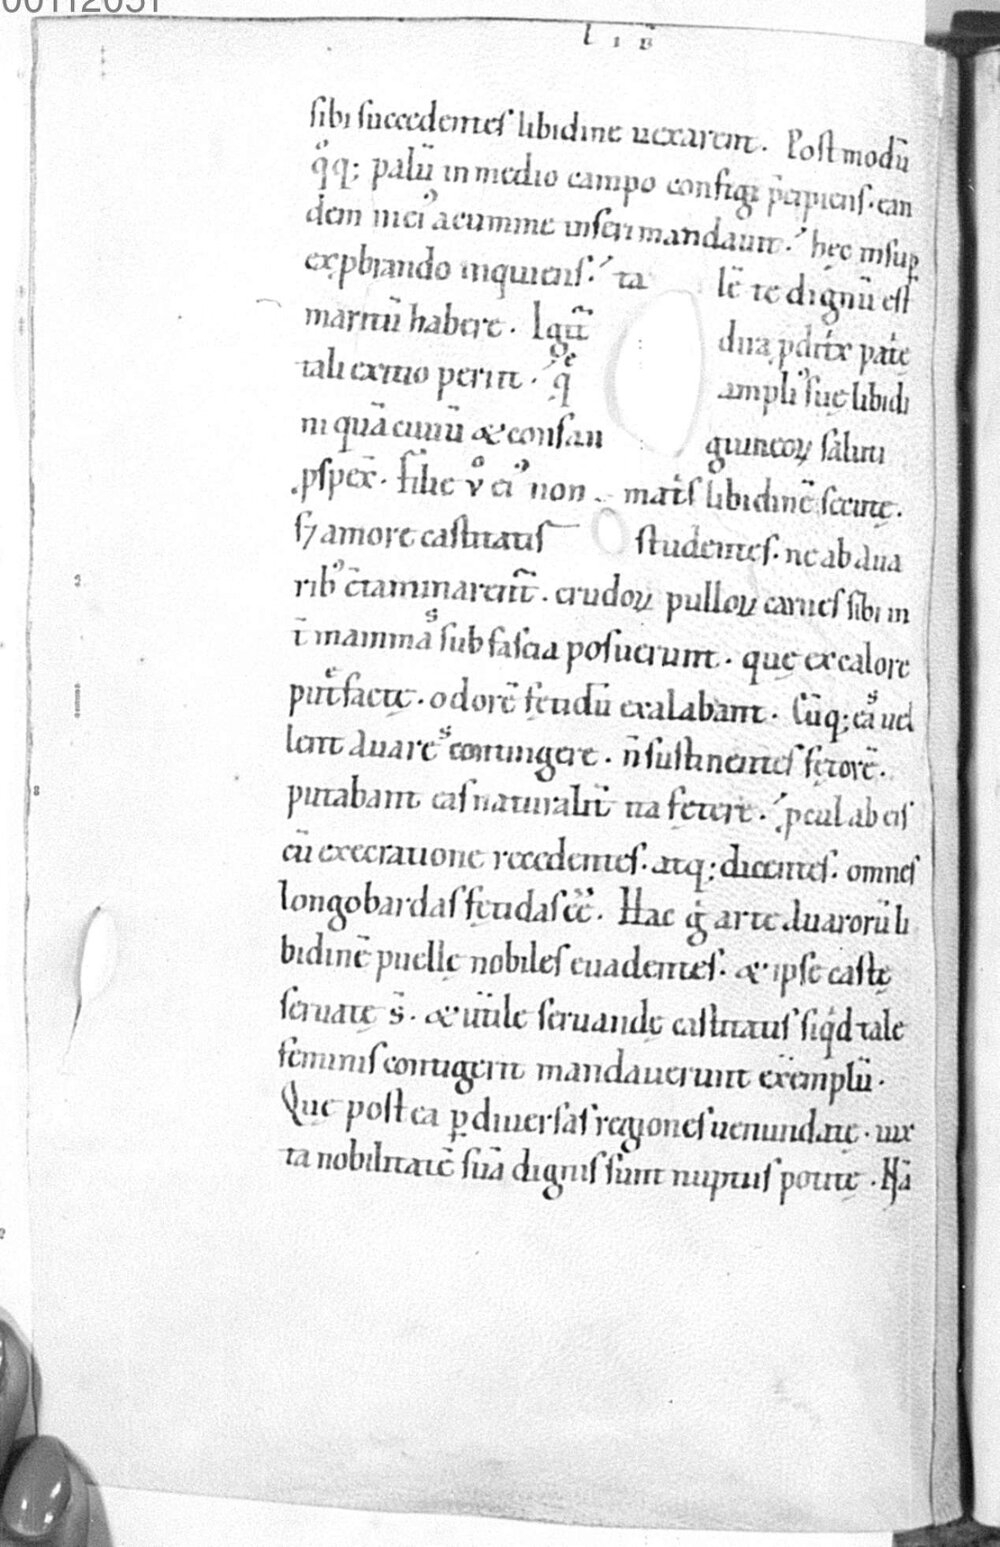 00112051
l i b̄
sibi succedentes libidine uexarent. Postmodū
q̊q; palū in medio campo configi p̄cipiens. ean
dem in ei᾽ acumine inseri mandauit. hęc insup̱
exp̱brando inquiens. ta lē te dignū est
maritū habere. Igit̄ dira p̱ditrix pat̄ę
tali exitio periit. q̄ ampli᾽ suę libidi
ni quā ciuiū & consan guineoꝝ saluti
p̱spex̄. Filię v̊ ei᾽ non mat̄s libidinē secutę.
s; amore castitatis studentes. ne ab aua
rib᾽ c̄taminarent̄. crudoꝝ pulloꝝ carnes sibi in
t̄ mammas sub fascia posuerunt. que ex calore
put̄factę. odorē fętidū exalabant. Cūq; eas uel
lent auares contingere. n̄ sustinentes fętorē.
putabant eas naturalit̄ ita fętere. p̱cul ab eis
cū execratione recedentes. atq; dicentes. omnes
longobardas fętidas ēē. Hac g̊ arte auarorū li
bidinē puellę nobiles euadentes. & ipse castę
seruatę s̄. & utile seruandę castitatis siqͥd tale
feminis contigerit mandauerunt exemplū.
Que post ea p̱ diuersas regiones uenundatę. iux
ta nobilitatē suā dignis sunt nuptiis potitę. Nā